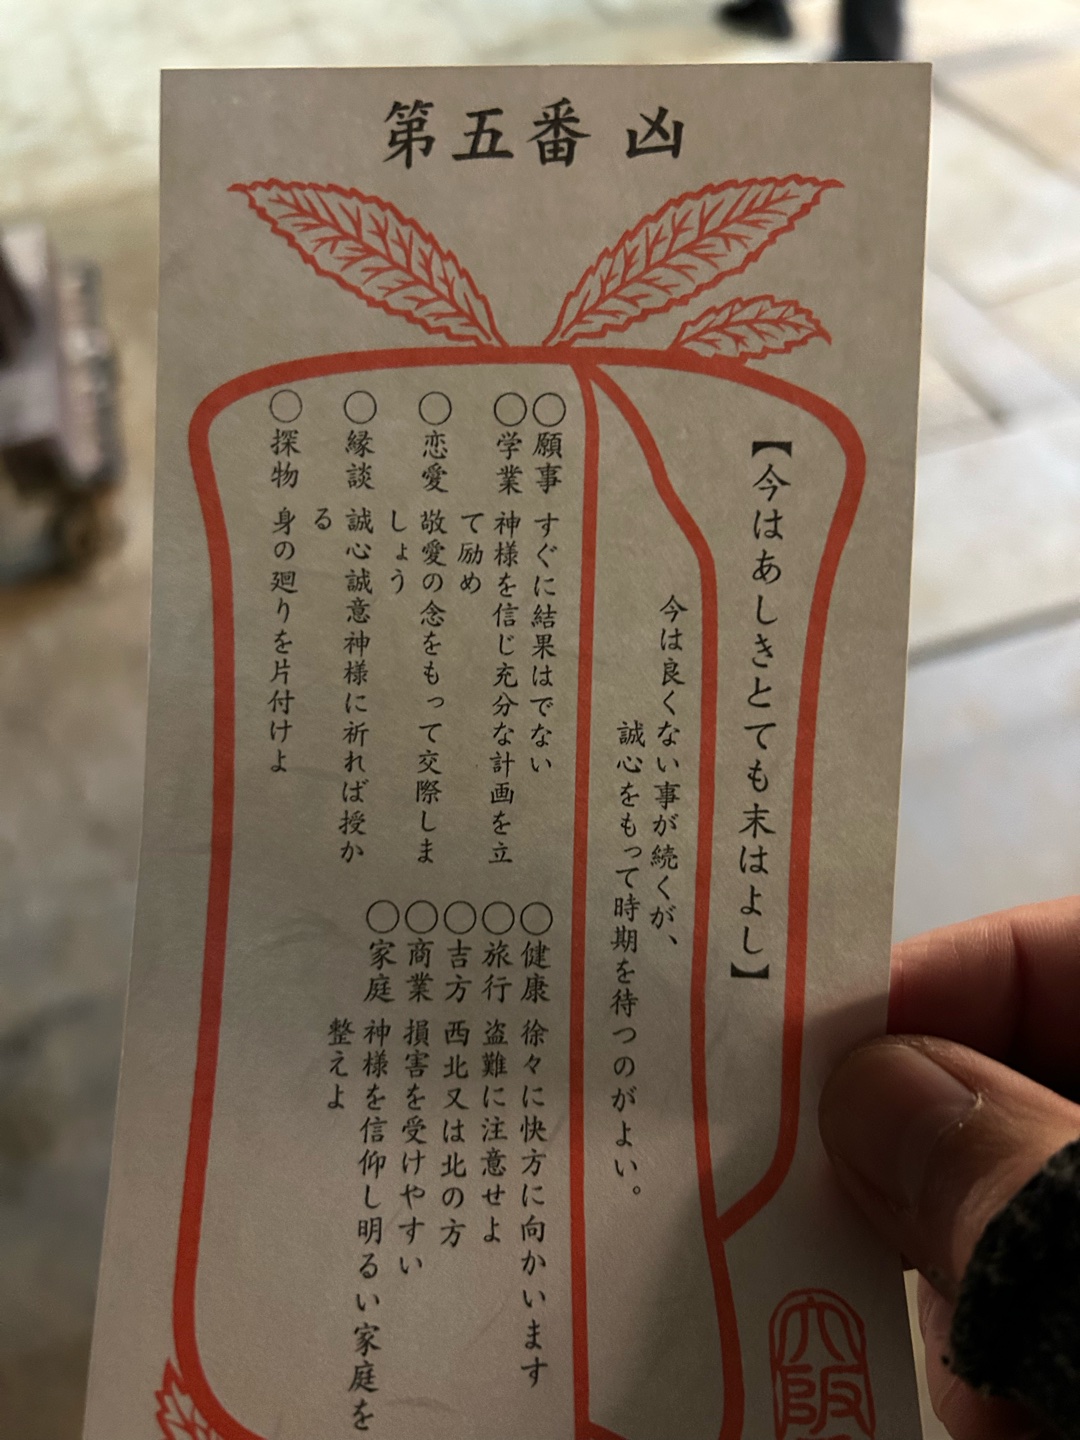 第五番 凶
【今はあしきとても末はよし】
今は良くない事が続くが、
誠心をもって時期を待つのがよい。
○願事 すぐに結果はでない
○学業 神様を信じ充分な計画を立
て励め
○恋愛 敬愛の念をもって交際しま
しょう
○縁談 誠心誠意神様に祈れば授か
る
○探物 身の廻りを片付けよ
○健康 徐々に快方に向かいます
○旅行 盗難に注意せよ
○吉方 西北又は北の方
○商業 損害を受けやすい
○家庭 神様を信仰し明るい家庭を
整えよ
大阪